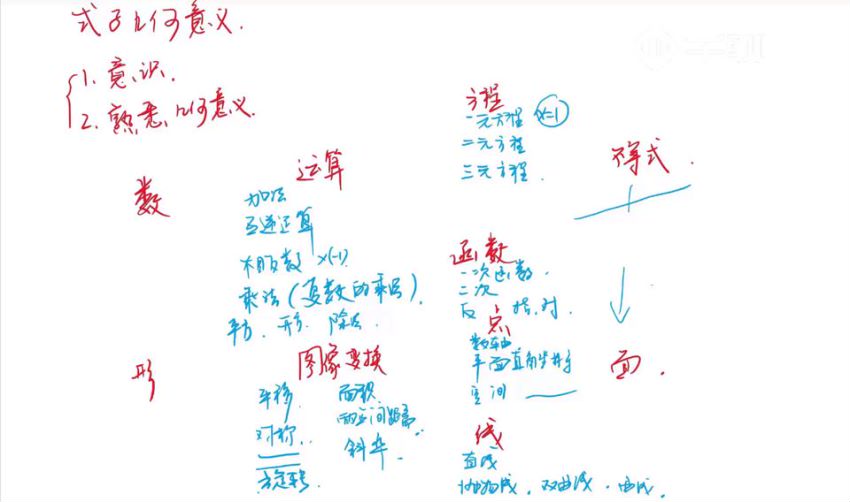 式子几何意义.
1. 意识.
2. 熟悉几何意义.
数
运算
加法
互逆运算
相反数 ×(-1)
乘法(复数的乘法).
平方. 开方. 除法.
方程
一元方程 x=1
二元方程
三元方程.
不等式.
函数
一次函数.
二次
反 指.对.
形
图像变换
平移.
对称.
旋转
面积.
两点间距离.
斜率.
点
数轴
平面直角坐标系
空间
线
直线
抛物线. 双曲线. 曲线.
面.